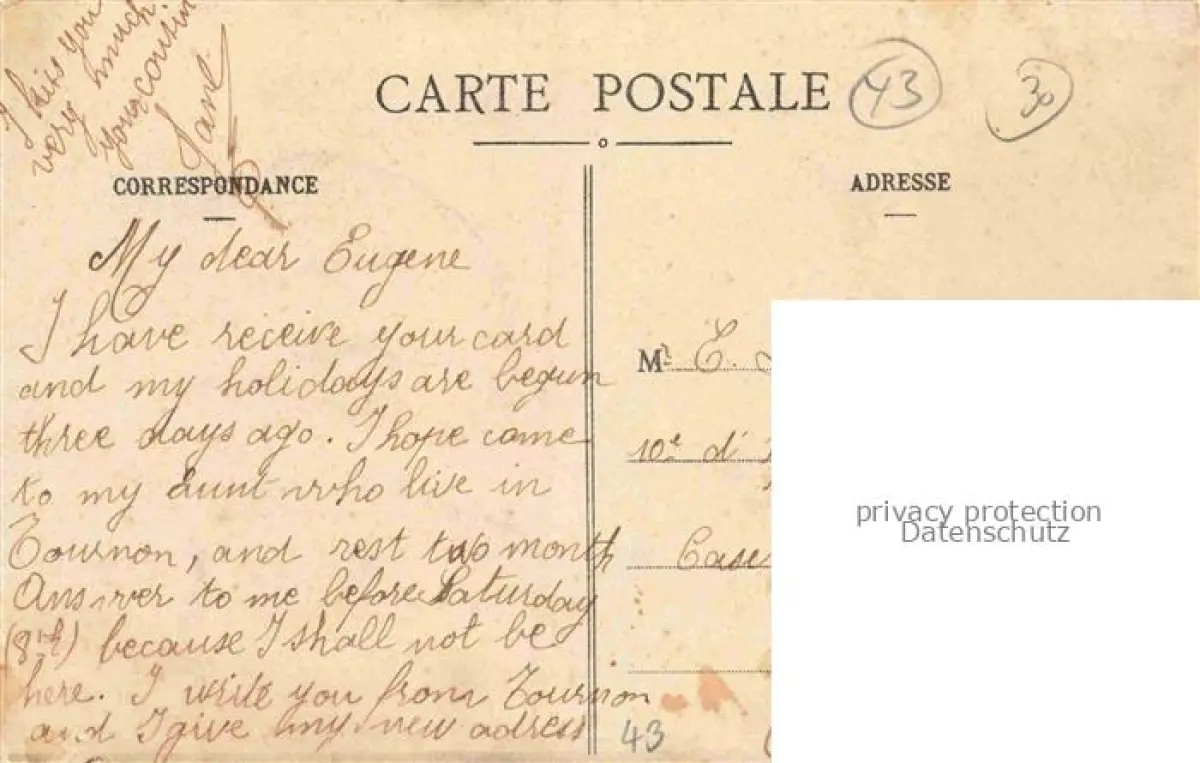 I kiss you
very much
your cousin
CARTE POSTALE
43
30
CORRESPONDANCE
My dear Eugene
I have receive your card
and my holidays are begun
three days ago. I hope come
to my aunt who live in
Tournon, and rest two month
Answer to me before Saturday
(8th) because I shall not be
here. I write you from Tournon
and I give my new adress
ADRESSE
Mr E.
10e d'
Case
43
privacy protection
Datenschutz